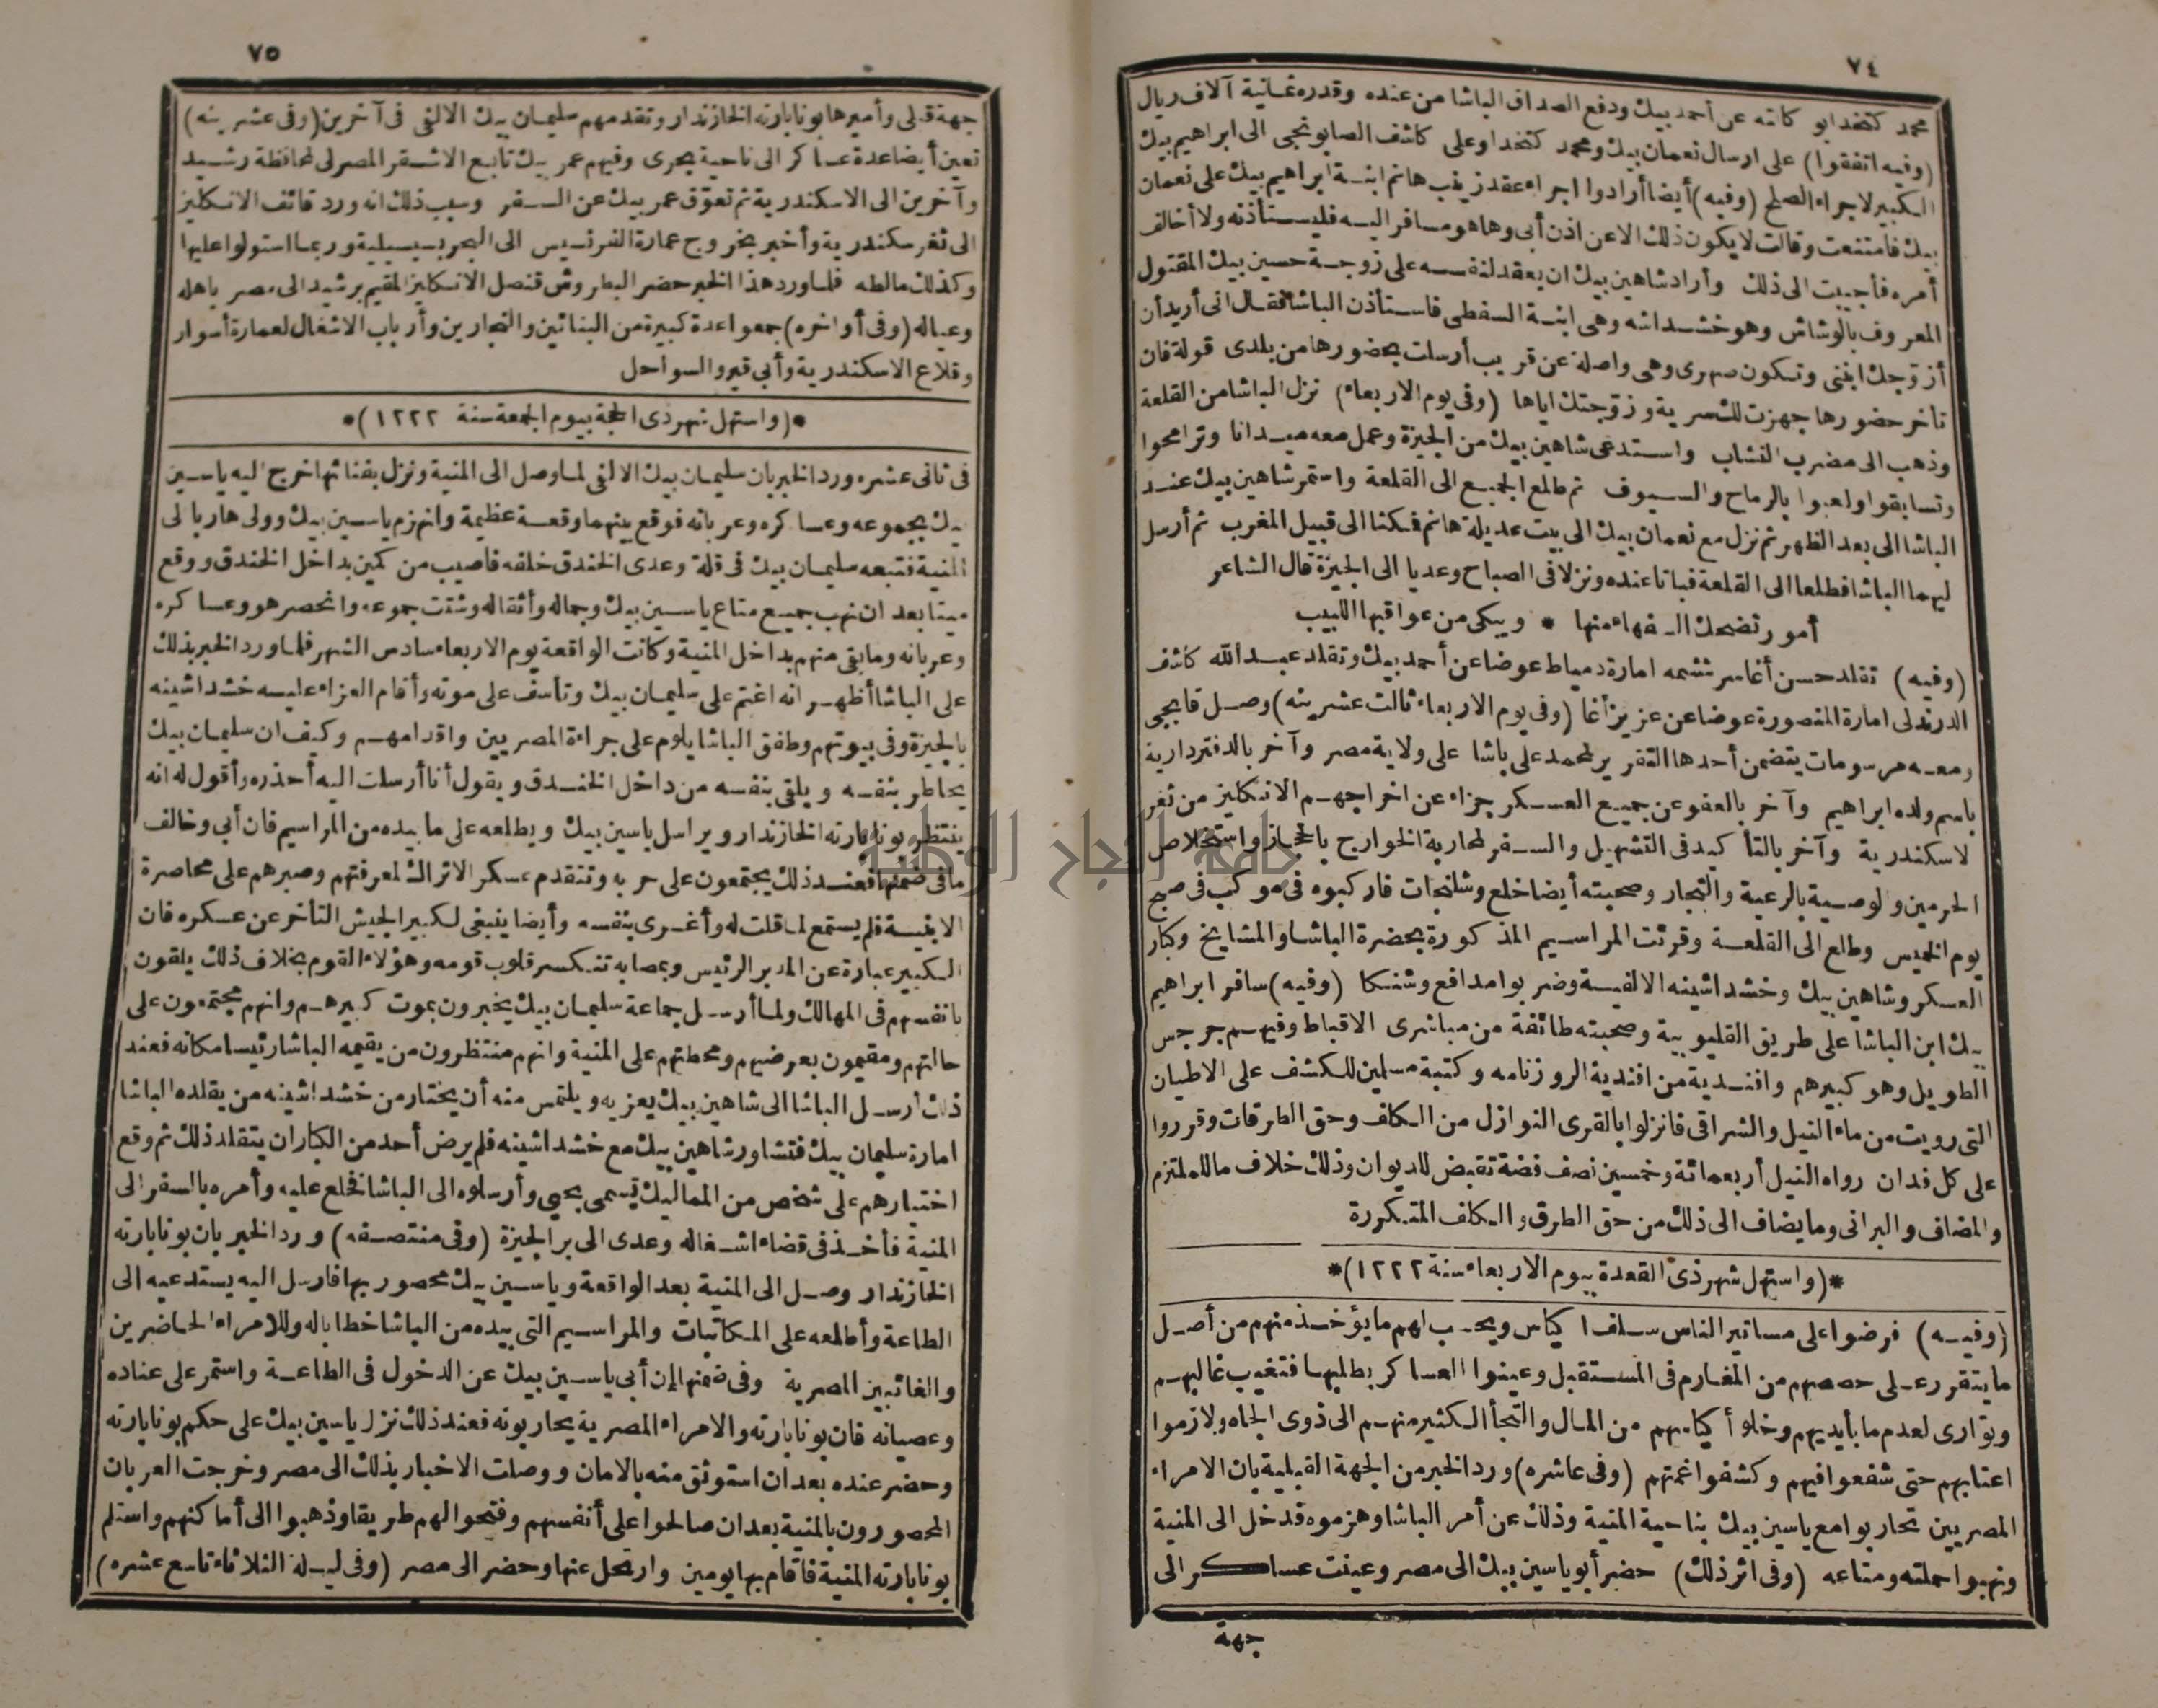 ٧٤
محمد كتخدا بو كاته عن أحمد بيك ودفع الصداق الباشا من عنده وقدره ثمانية آلاف ريال
(وفيه اتفقوا) على ارسال نعمان بيك ومحمد كتخدا وعلى كاشف الصابونجى الى ابراهيم بيك
الكبير لاجراء الصلح (وفيه) أيضا أرادوا اجراء عقد زينب هانم ابنة ابراهيم بيك على نعمان
بيك فامتنعت وقالت لا يكون ذلك الا عن اذن أبى وها هو مسافر اليه فليستأذنه ولا أخالف
أمره فأجيبت الى ذلك وأراد شاهين بيك ان يعقد لنفسه على زوجة حسين بيك المقتول
المعروف بالوشاش وهو خشداشه وهى ابنة السفطى فاستأذن الباشا فقال انى أريد أن
أزوجك ابنتى وتكون صهرى وهى واصلة عن قريب أرسلت بحضورها من بلدى قولة فان
تأخر حضورها جهزت لك سرية وزوجتك اياها (وفى يوم الاربعاء) نزل الباشا من القلعة
وذهب الى مضرب النشاب واستدعى شاهين بيك من الجيزة وعمل معه ميدانا وترامحوا
وتسابقوا ولعبوا بالرماح والسيوف ثم طلع الجميع الى القلعة واستمر شاهين بيك عند
الباشا الى بعد الظهر ثم نزل مع نعمان بيك الى بيت عديلة هانم فمكثا الى قبيل المغرب ثم أرسل
ليهما الباشا فطلعا الى القلعة فباتا عنده ونزلا فى الصباح وعديا الى الجيزة قال الشاعر
أمور تضحك السفهاء منها * ويبكى من عواقبها اللبيب
(وفيه) تقلد حسن أغا سرششمه امارة دمياط عوضا عن أحمد بيك وتقلد عبد الله كاشف
الدرندلى امارة المنصورة عوضا عن عزيز أغا (وفى يوم الاربعاء ثالث عشرينه) وصل قابجى
ومعه مرسومات يتضمن أحدها التقرير لمحمد على باشا على ولاية مصر وآخر بالدفتردارية
باسم ولده ابراهيم وآخر بالعفو عن جميع العسكر جزاء عن اخراجهم الانكليز من ثغر
لاسكندرية وآخر بالتأكيد فى التشهيل والسفر لمحاربة الخوارج بالحجاز واستخلاص
الحرمين والوصية بالرعية والتجار وصحبته أيضا خلع وشلنجات فاركبوه فى موكب فى صبح
يوم الخميس وطلع الى القلعة وقرئت المراسيم المذكورة بحضرة الباشا والمشايخ وكبار
العسكر وشاهين بيك وخشداشينه الالفية وضربوا مدافع وشنكا (وفيه) سافر ابراهيم
بيك ابن الباشا على طريق القليوبية وصحبته طائفة من مباشرى الاقباط وفيهم جرجس
الطويل وهو كبيرهم وافندية من افندية الروزنامه وكتبة مسلمين للكشف على الاطيان
التى رويت من ماء النيل والشراقى فانزلوا بالقرى النوازل من الكلف وحق الطرقات وقرروا
على كل فدان رواه النيل أربعمائة وخمسين نصف فضة تقبض للديوان وذلك خلاف ما للملتزم
والمضاف والبرانى وما يضاف الى ذلك من حق الطرق والكلف المتكررة
*(واستهل شهر ذى القعدة بيوم الاربعاء سنة ١٢٢٢)*
(وفيه) فرضوا على مساتير الناس سلف اكياس ويحسب لهم ما يؤخذ منهم من أصل
ما يتقرر على حصصهم من المغارم فى المستقبل وعينوا العساكر بطلبها فتغيب غالبهم
وتوارى لعدم ما بأيديهم وخلو أكياسهم من المال والتجأ الكثير منهم الى ذوى الجاه ولازموا
اعتابهم حتى شفعوا فيهم وكشفوا غمتهم (وفى عاشره) ورد الخبر من الجهة القبلية بان الامراء
المصريين تحاربوا مع ياسين بيك بناحية المنية وذلك عن أمر الباشا وهزموه فدخل الى المنية
ونهبوا حملته ومتاعه (وفى اثر ذلك) حضر أبو ياسين بيك الى مصر وعينت عساكر الى
جهة
٧٥
جهة قبلى وأميرها بونابارته الخازندار وتقدمهم سليمان بيك الالفى فى آخرين (وفى عشرينه)
تعين أيضا عدة عساكر الى ناحية بحرى وفيهم عمر بيك تابع الاشقر المصرلى لمحافظة رشيد
وآخرين الى الاسكندرية ثم تعوق عمر بيك عن السفر وسبب ذلك انه ورد قائف الانكليز
الى ثغر سكندرية وأخبر بخروج عمارة الفرنسيس الى البحر بسيسيلية وربما استولوا عليها
وكذلك مالطه فلما ورد هذا الخبر حضر البطروش قنصل الانكليز المقيم برشيد الى مصر باهله
وعياله (وفى أواخره) جمعوا عدة كبيرة من البنائين والنجارين وأرباب الاشغال لعمارة أسوار
وقلاع الاسكندرية وأبى قير والسواحل
*(واستهل شهر ذى الحجة بيوم الجمعة سنة ١٢٢٢)*
فى ثانى عشره ورد الخبر بان سليمان بيك الالفى لما وصل الى المنية ونزل بفنائها خرج اليه ياسين
بيك بجموعه وعساكره وعربانه فوقع بينهما وقعة عظيمة وانهزم ياسين بيك وولى هاربا الى
المنية فتبعه سليمان بيك فى قلة وعدى الخندق خلفه فاصيب من كمين بداخل الخندق ووقع
ميتا بعد ان نهب جميع متاع ياسين بيك وجماله وأثقاله وشتت جموعه وانحصر هو وعساكره
وعربانه وما بقى منهم بداخل المنية وكانت الواقعة يوم الاربعاء سادس الشهر فلما ورد الخبر بذلك
على الباشا أظهر انه اغتم على سليمان بيك وتأسف على موته وأقام العزاء عليه خشداشينه
بالجيزة وفى بيوتهم وطفق الباشا يلوم على جراءة المصريين واقدامهم وكيف ان سليمان بيك
يخاطر بنفسه ويلقى بنفسه من داخل الخندق ويقول أنا أرسلت اليه أحذره وأقول له انه
ينتظر بونابارته الخازندار ويراسل ياسين بيك ويطلعه على ما بيده من المراسيم فان أبى وخالف
ما فى ضمنها فعند ذلك يجتمعون على حربه وتتقدم عسكر الاتراك لمعرفتهم وصبرهم على محاصرة
الابنية فلم يستمع لما قلت له وأغرى بنفسه وأيضا ينبغى لكبير الجيش التأخر عن عسكره فان
الكبير عبارة عن المدبر الرئيس وبمصابه تنكسر قلوب قومه وهؤلاء القوم بخلاف ذلك يلقون
بانفسهم فى المهالك ولما أرسل جماعة سليمان بيك يخبرون بموت كبيرهم وانهم مجتمعون على
حالتهم ومقيمون بعرضيهم ومحطتهم على المنية وانهم منتظرون من يقيمه الباشا رئيسا مكانه فعند
ذلك أرسل الباشا الى شاهين بيك يعزيه ويلتمس منه أن يختار من خشداشينه من يقلده الباشا
امارة سليمان بيك فتشاور شاهين بيك مع خشداشينه فلم يرض أحد من الكبار ان يتقلد ذلك ثم وقع
اختيارهم على شخص من المماليك يسمى يحيى وأرسلوه الى الباشا فخلع عليه وأمره بالسفر الى
المنية فأخذ فى قضاء اشغاله وعدى الى بر الجيزة (وفى منتصفه) ورد الخبر بان بونابارته
الخازندار وصل الى المنية بعد الواقعة وياسين بيك محصور بها فارسل اليه يستدعيه الى
الطاعة وأطلعه على المكاتبات والمراسيم التى بيده من الباشا خطابا له وللامراء الحاضرين
والغائبين المصرية وفى ضمنها ان أبى ياسين بيك عن الدخول فى الطاعة واستمر على عناده
وعصيانه فان بونابارته والامراء المصرية يحاربونه فعند ذلك نزل ياسين بيك على حكم بونابارته
وحضر عنده بعد ان استوثق منه بالامان ووصلت الاخبار بذلك الى مصر وخرجت العربان
المحصورون بالمنية بعد ان صالحوا على أنفسهم وفتحوا لهم طريقا وذهبوا الى أماكنهم واستلم
بونابارته المنية فاقام بها يومين وارتحل عنها وحضر الى مصر (وفى ليلة الثلاثاء تاسع عشره)
جامعة النجاح الوطنية